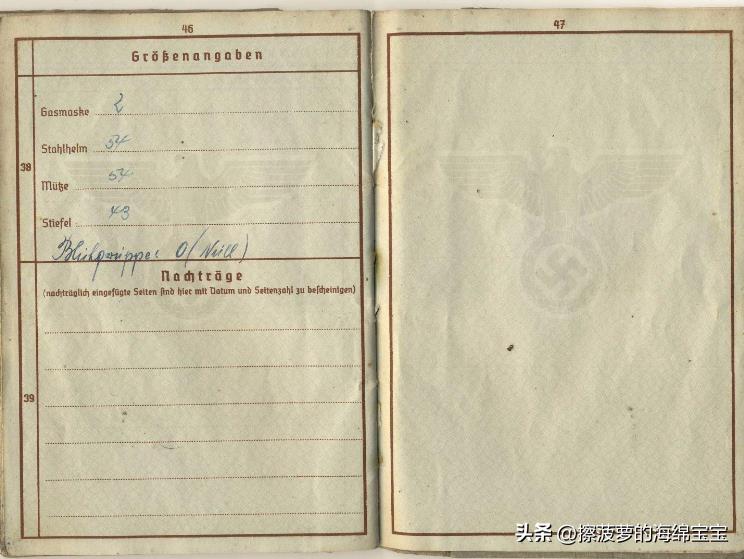 46
Größenangaben
38
Gasmaske 2
Stahlhelm 54
Mütze 54
Stiefel 43
Blutgruppe: O (Null)
Nachträge
(nachträglich eingefügte Seiten sind hier mit Datum und Seitenzahl zu bescheinigen)
39
47
头条 @擦菠萝的海绵宝宝